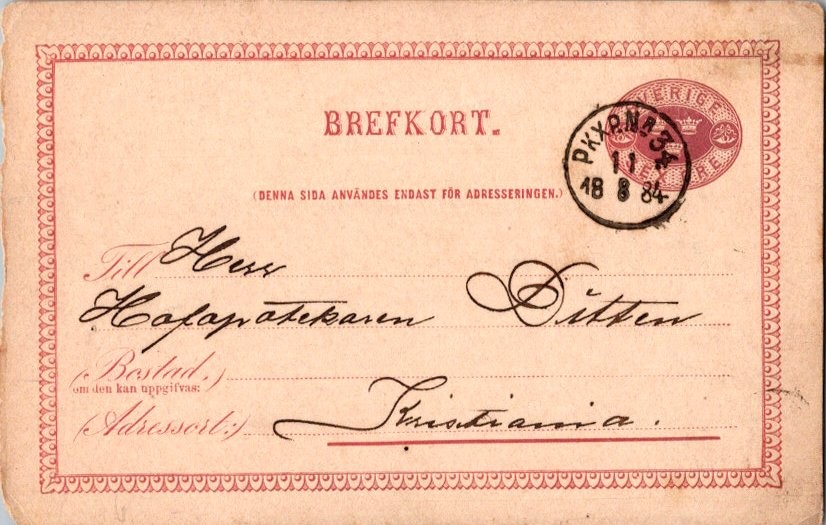 SVERIGE
BREFKORT.
PKXP. Nr. 34
11
18 8 84
(DENNA SIDA ANVÄNDES ENDAST FÖR ADRESSERINGEN.)
Till Herr
Hofapotekaren Ditten
(Bostad,)
om den kan uppgifvas:
(Adressort:) Kristiania.